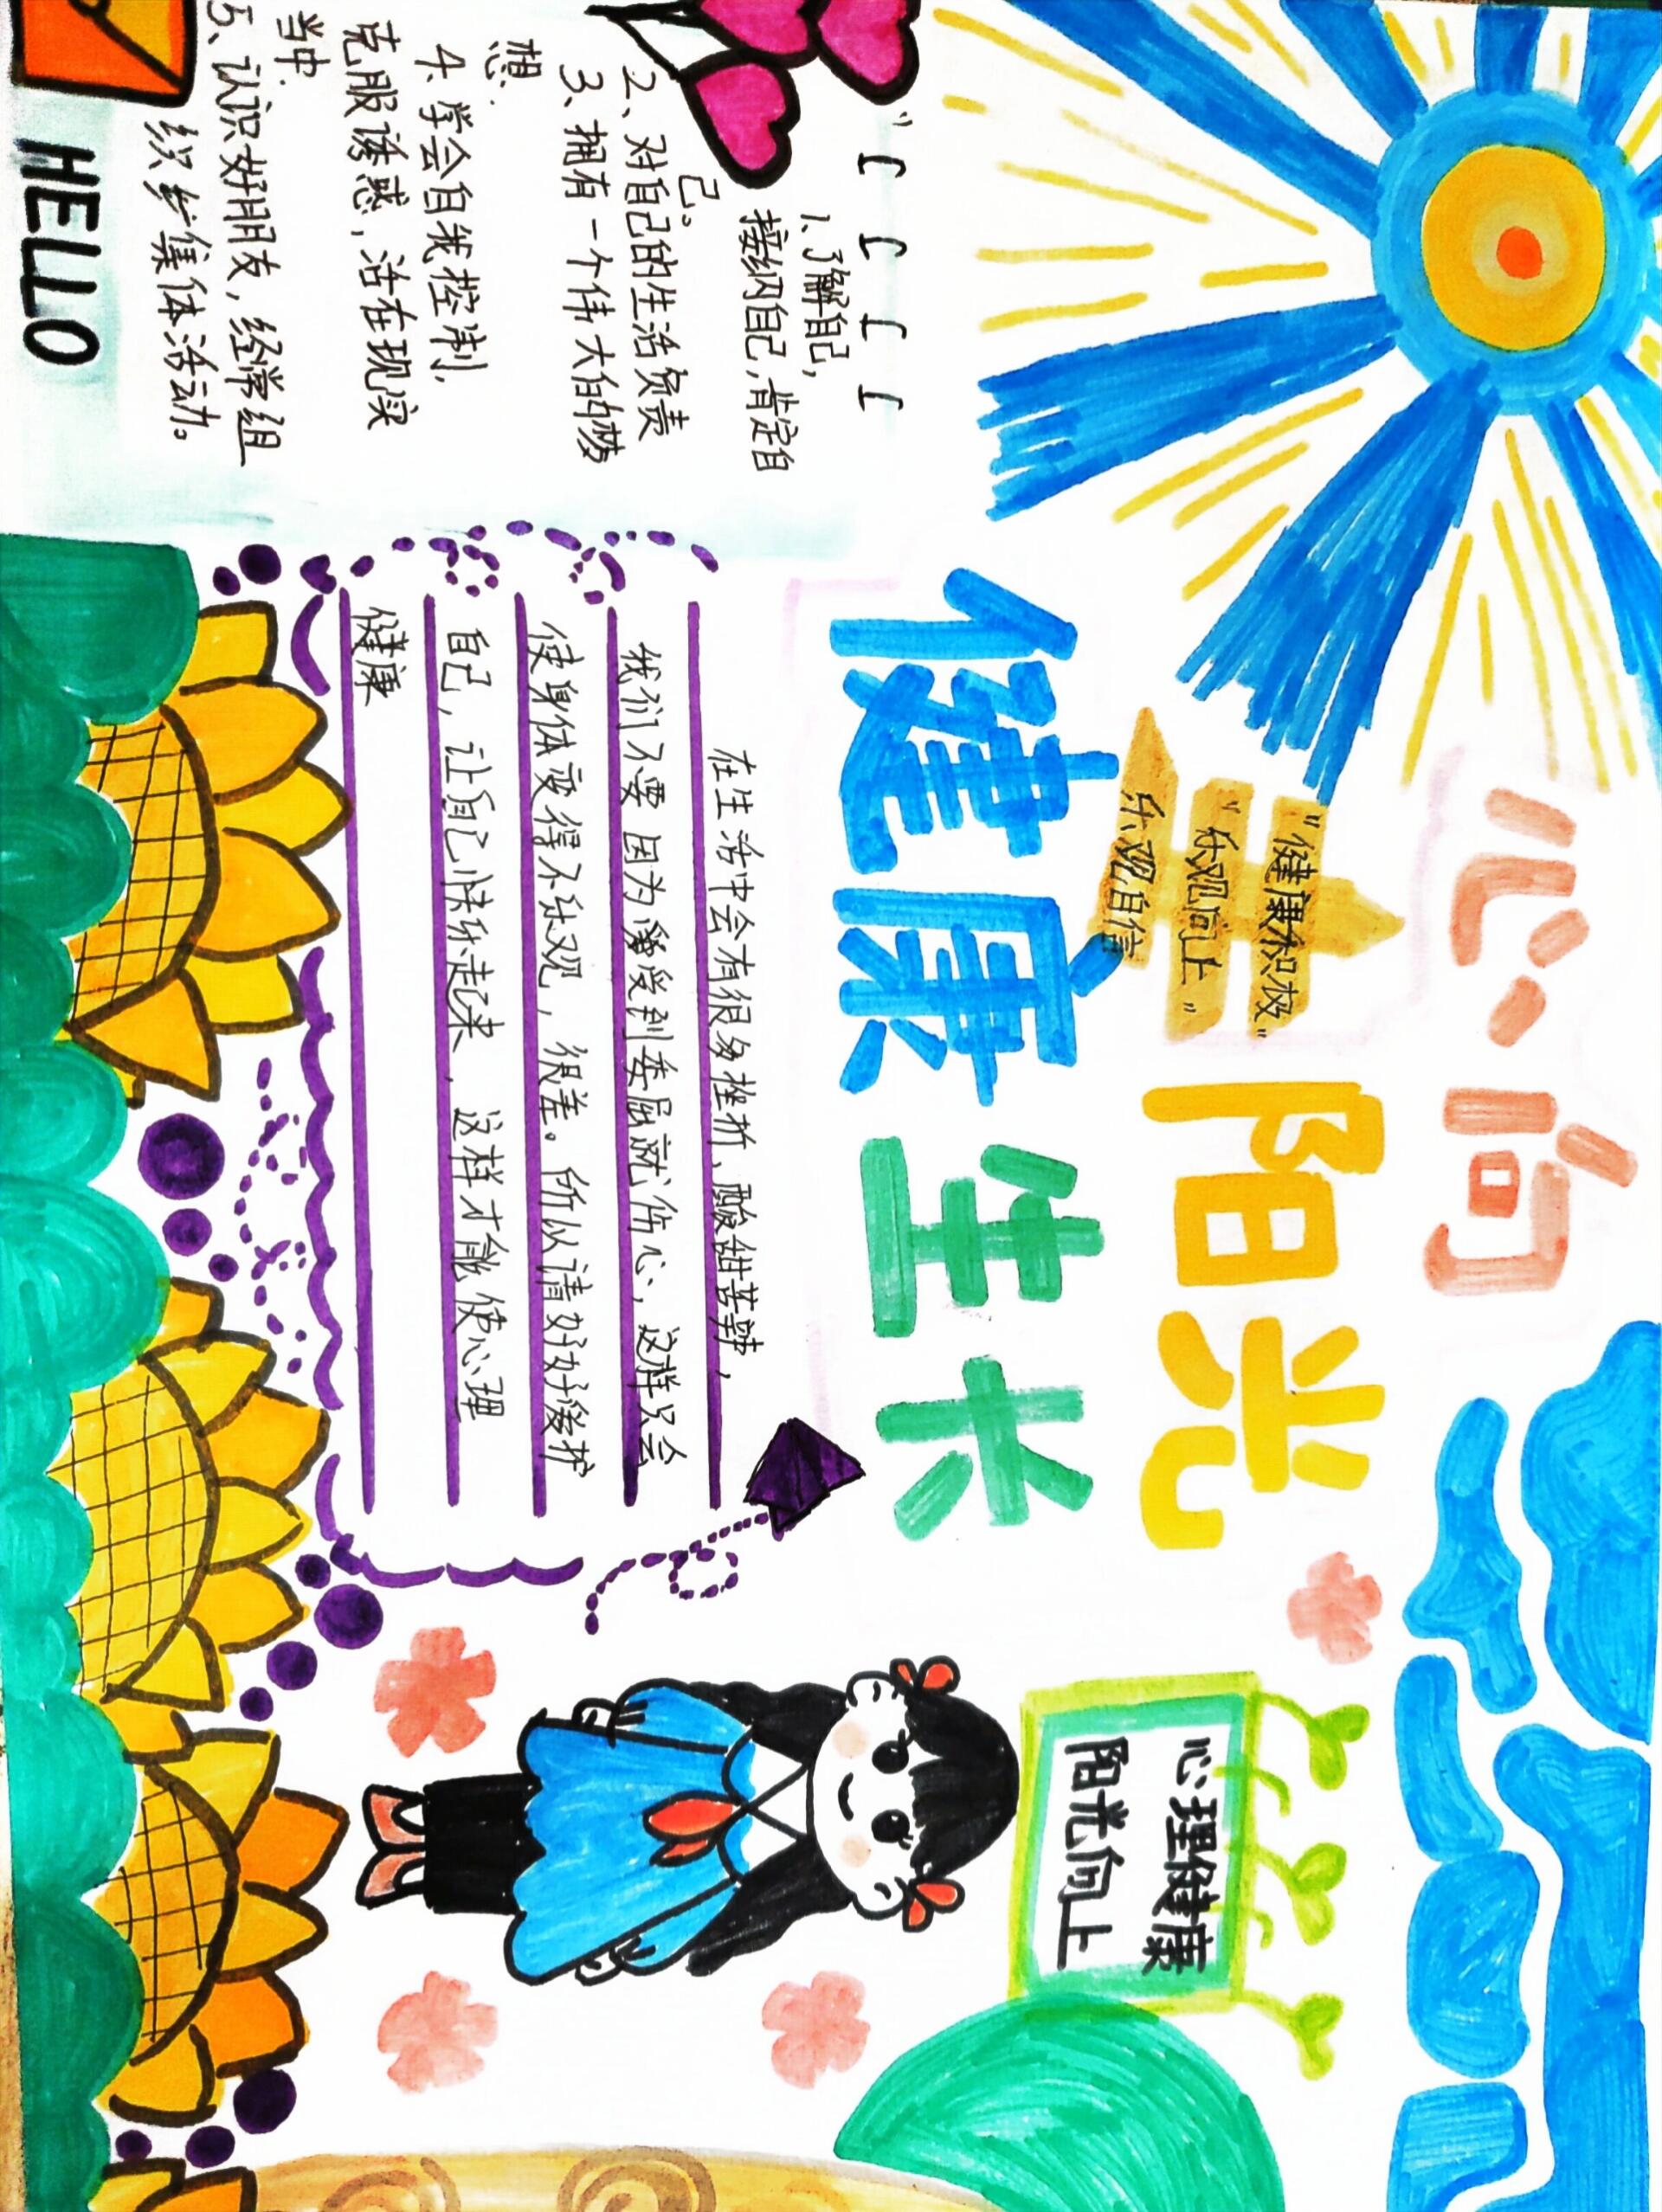 心向
阳光
"健康积极"
"乐观向上"
乐观自信
健康生长
心理健康
阳光向上
1、了解自己,
接纳自己,肯定自
己。
2、对自己的生活负责
3、拥有一个伟大的梦
想.
4、学会自我控制,
克服诱惑,活在现实
当中.
5、认识好朋友,经常组
织参集体活动。
HELLO
在生活中会有很多挫折、酸甜苦辣,
我们不要因为受到委屈就伤心,这样只会
使身体变得不乐观,很差。所以请好好爱护
自己,让自己快乐起来,这样才能使心理
健康